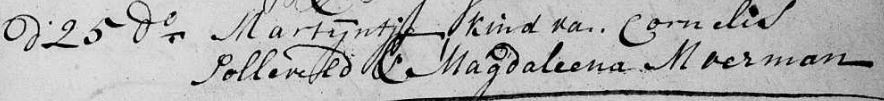 d' 25 do Martijntje kind van Cornelis
Polleveld & Magdaleena Moerman